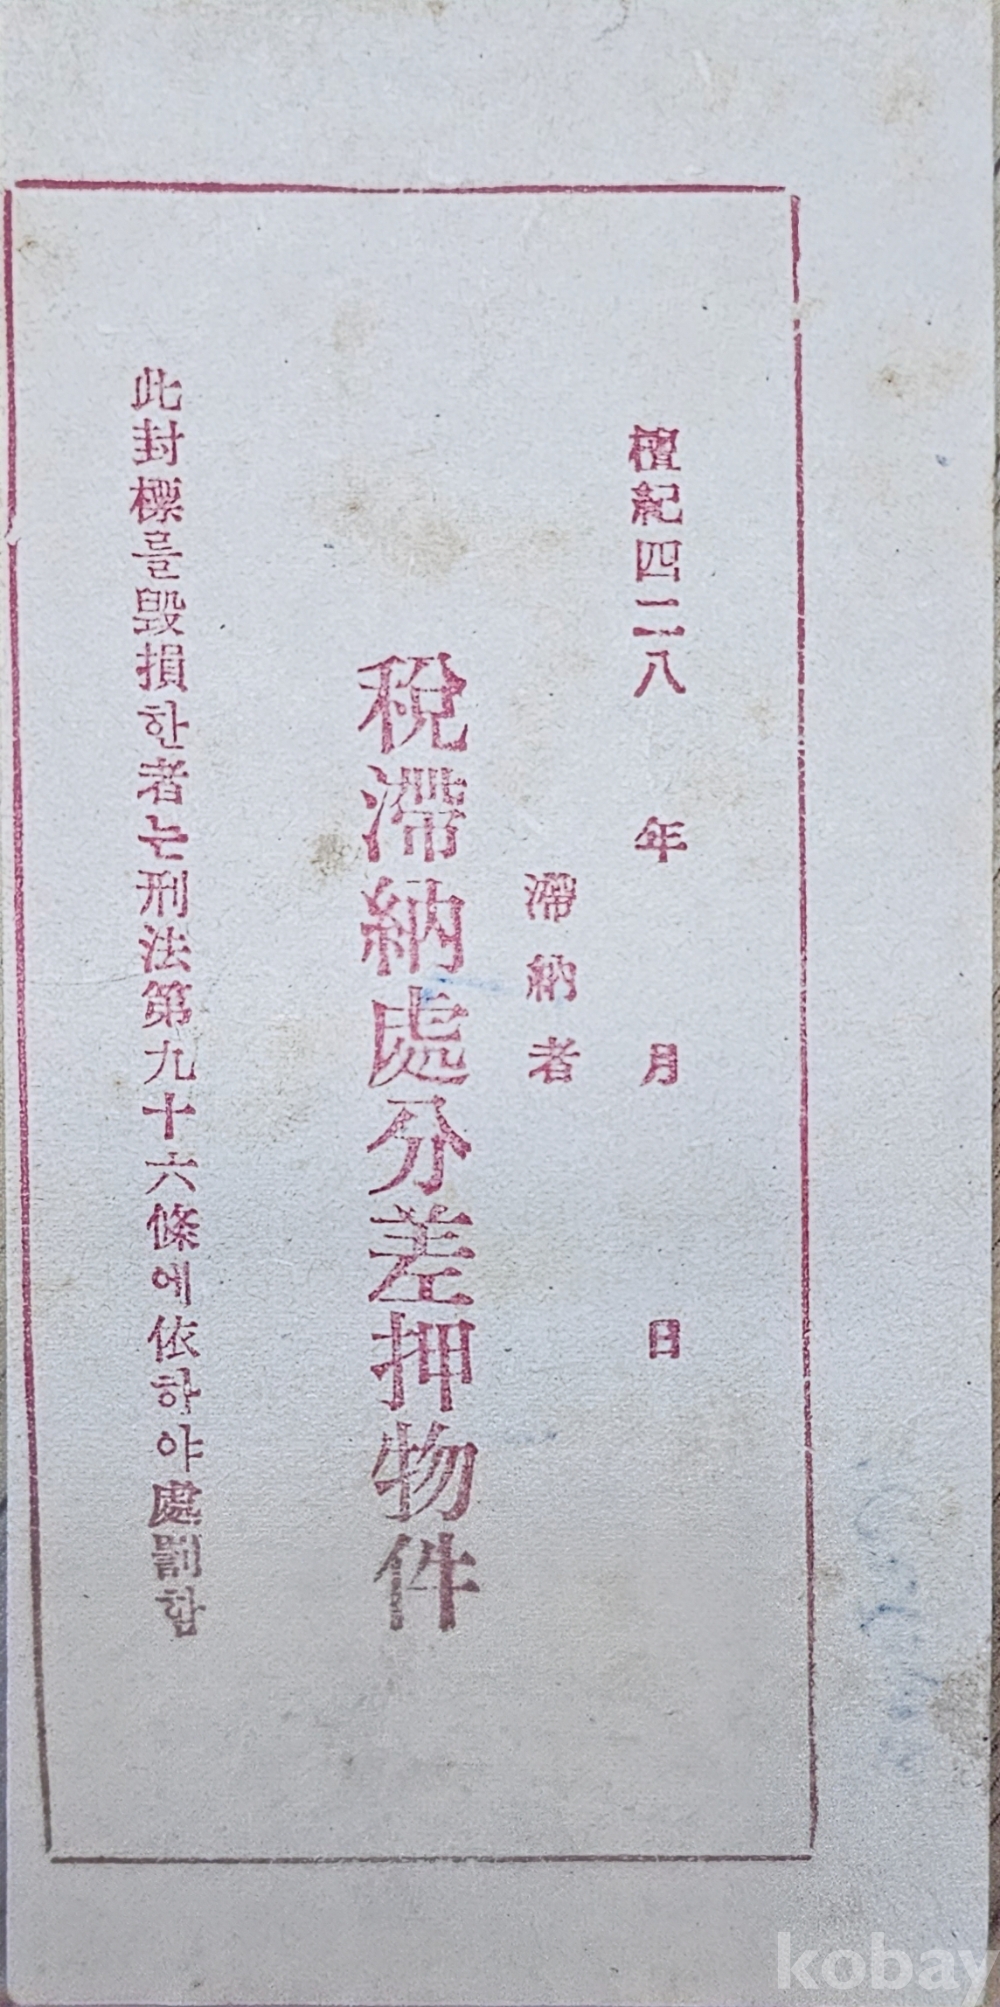 檀紀四二八 年 月 日
滯納者
稅滯納處分差押物件
此封標를毀損한者는刑法第九十六條에依하야處罰함
kobay